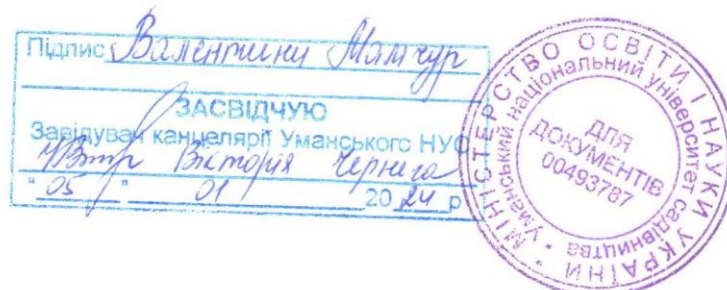 Підпис Валентини Мамчур
ЗАСВІДЧУЮ
Завідувач канцелярії Уманського НУС
Вікторія Чернега
"05" 01 2024 р
МІНІСТЕРСТВО ОСВІТИ І НАУКИ УКРАЇНИ *
Уманський національний університет садівництва *
ДЛЯ
ДОКУМЕНТІВ
00493787